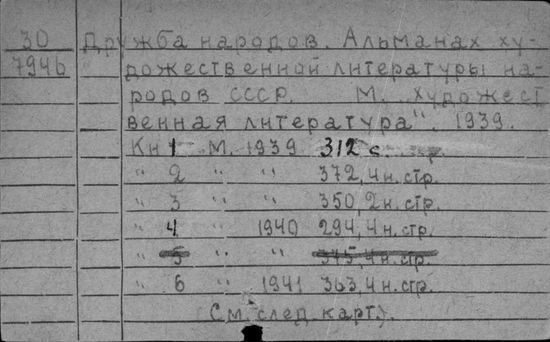 30 Дружба народов. Альманах ху-
7946 дожественной литературы на-
родов СССР. М. „Художест
венная литература". 1939.
Кн 1 М. 1939 312 с.
" 2 " " 372, 4 н. стр.
" 3 " " 350, 2 н. стр.
" 4 " 1940 294, 4 н. стр.
" 5 " " 345, 4 н. стр.
" 6 " 1941 363, 4 н. стр.
(См. след. карт.).